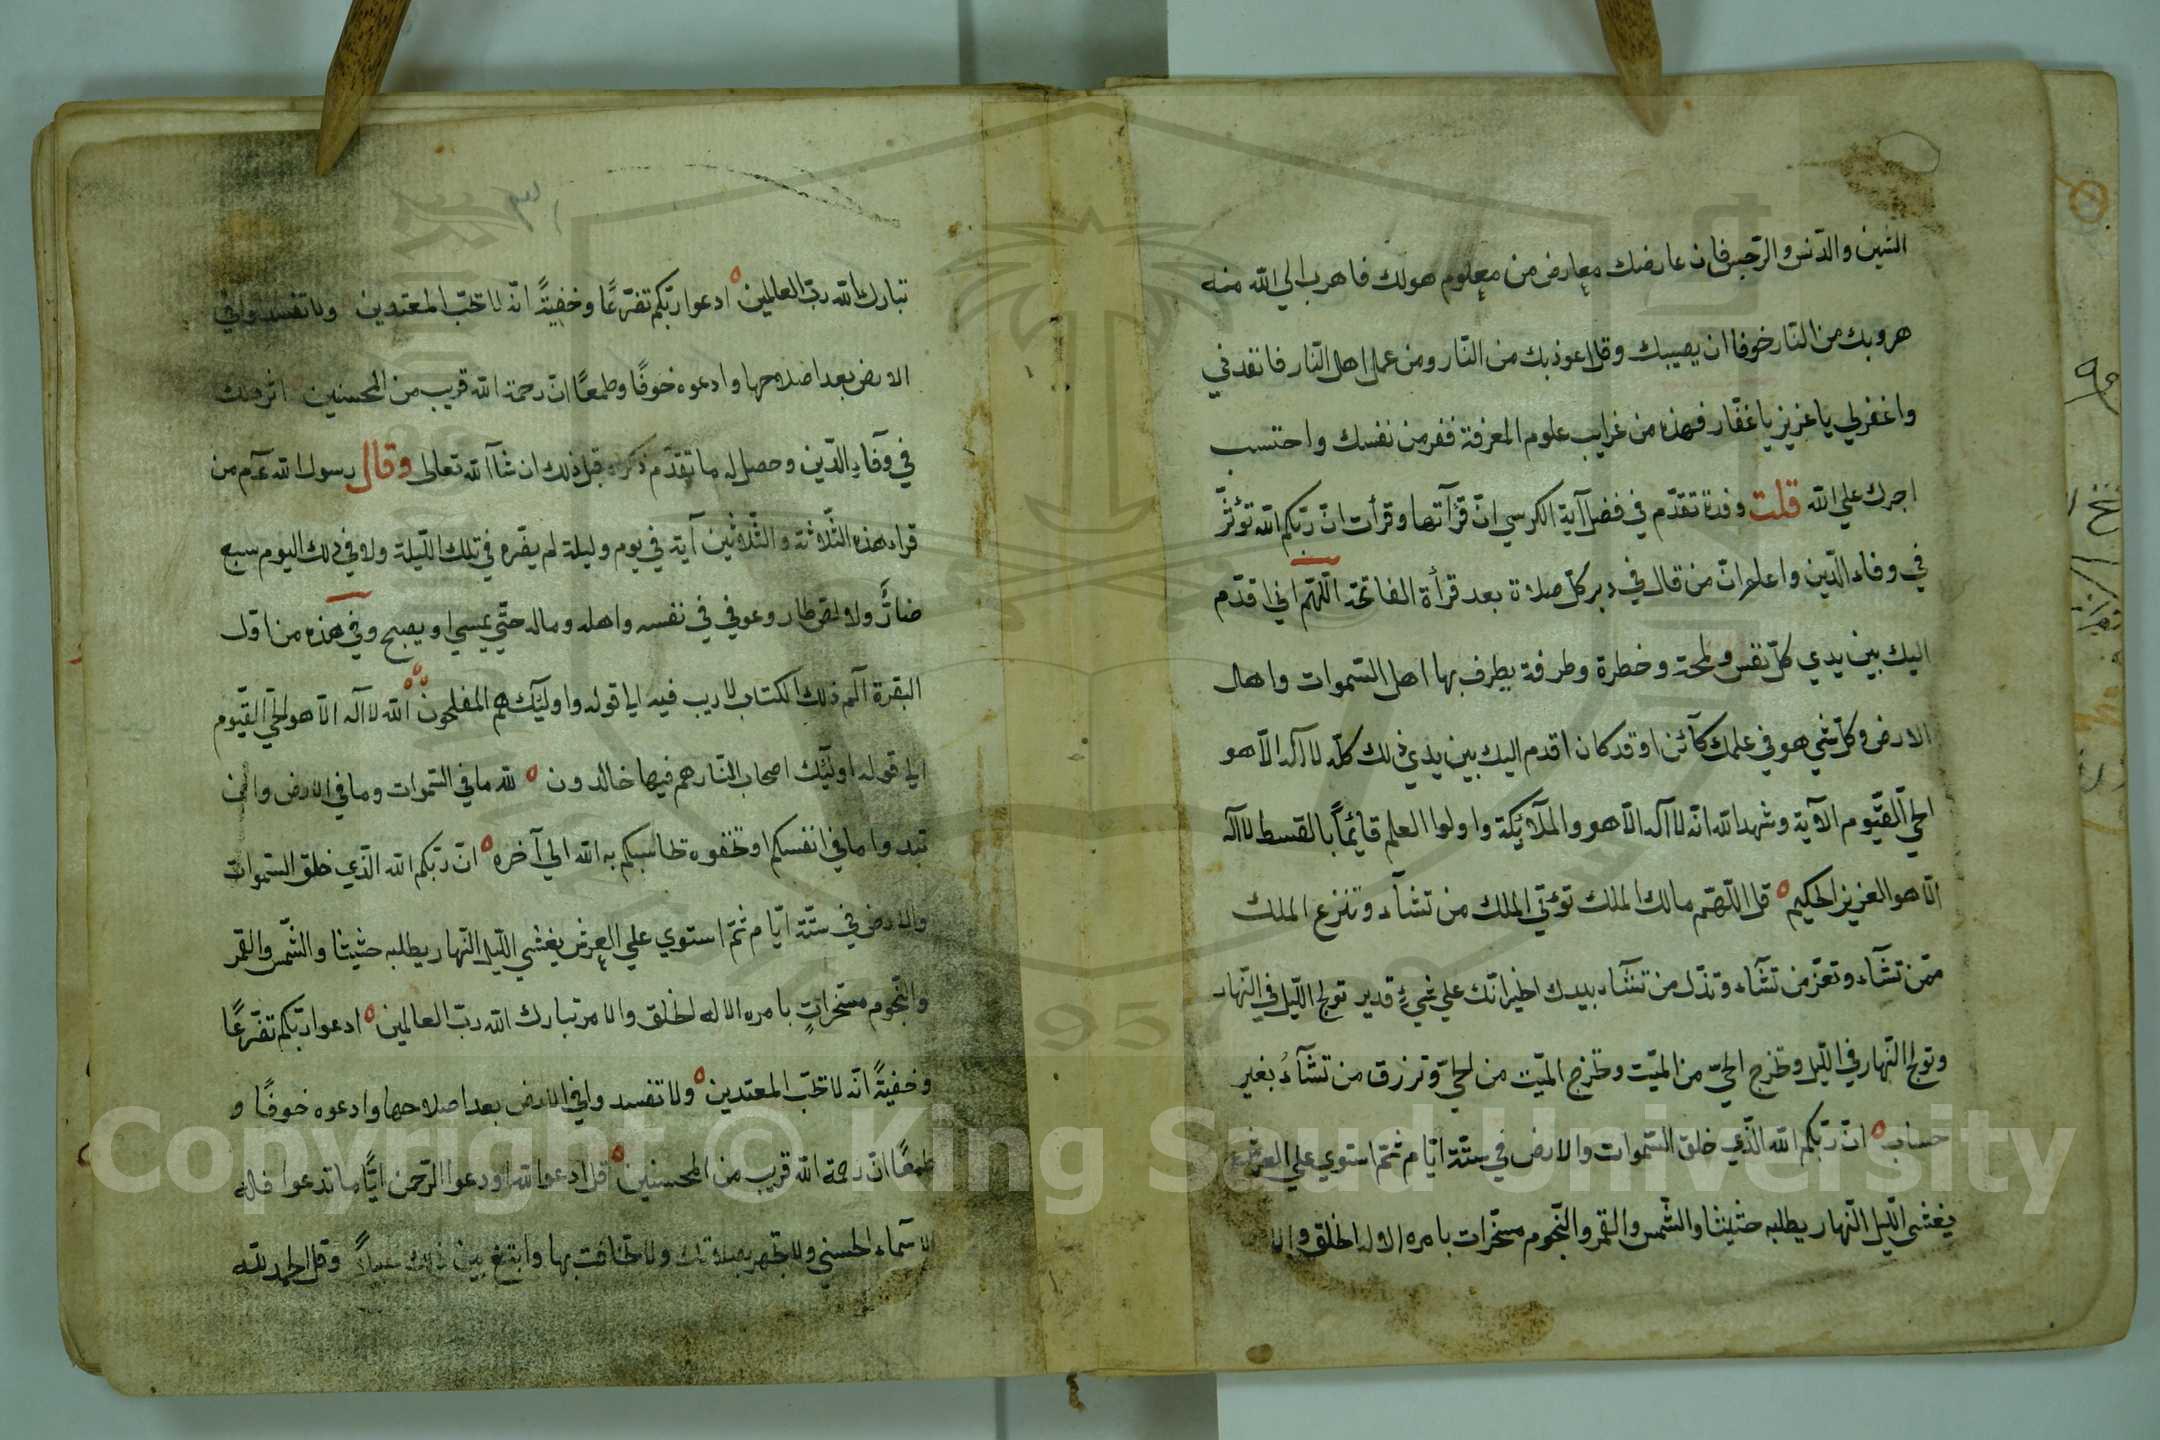 الشين والدنس والرجس فان عارضك معارض من معلوم هولك فاهرب الي الله منه
هروبك من النار خوفا ان يصيبك وقل اعوذ بك من النار ومن عمل اهل النار فانقدني
واغفرلي يا عزيز يا غفار فهذه من غرايب علوم المعرفة ففر من نفسك واحتسب
اجرك علي الله قلت وقد تقدم في فضل آية الكرسي ان قرآتها وقرأت ان ربكم الله تؤثر
في وفاء الدين واعلم ان من قال في دبر كل صلاة بعد قرأة الفاتحة اللهم اني اقدم
اليك بين يدي كل نفس ولمحة وخطرة وطرفة يطرف بها اهل السموات واهل
الارض وكل شي هو في علمك كآئن او قد كان اقدم اليك بين يدي ذلك كله لا اله الا هو
الحي القيوم الآية وشهد الله انه لا اله الا هو والملآئكة واولوا العلم قائما بالقسط لا اله
الا هو العزيز الحكيم قل اللهم مالك الملك تؤتي الملك من تشآء وتنزع الملك
ممن تشآء وتعز من تشآء وتذل من تشآء بيدك الخير انك علي شيء قدير تولج الليل في النهار
وتولج النهار في الليل وتخرج الحي من الميت وتخرج الميت من الحي وترزق من تشآء بغير
حساب ان ربكم الله الذي خلق السموات والارض في ستة ايام ثم استوي علي العرش
يغشي الليل النهار يطلبه حثيثا والشمس والقمر والنجوم مسخرات بامره الا له الخلق والا
تبارك الله رب العالمين ادعوا ربكم تضرعا وخفية انه لا تحب المعتدين ولا تفسدوا في
الارض بعد اصلاحها وادعوه خوفا وطمعا ان رحمة الله قريب من المحسنين اثر ذلك
في وفآء الدين وحصل له ما تقدم ذكره قبل ذلك ان شآ الله تعالي وقال رسول الله عم من
قراء هذه الثلاثة والثلاثين آية في يوم وليلة لم يضره في تلك الليلة ولا في ذلك اليوم سبع
ضار ولا لص طار وعوفي في نفسه واهله وماله حتي يمسي او يصبح وفي هذه من اول
البقرة الم ذلك الكتاب لا ريب فيه الي قوله واوليك هم المفلحون الله لا اله الا هو الحي القيوم
الي قوله اوليك اصحاب النار هم فيها خالدون لله ما في السموات وما في الارض وان
تبدوا ما في انفسكم او تخفوه تحاسبكم به الله الي آخره ان ربكم الله الذي خلق السموات
والارض في ستة ايام ثم استوي علي العرش يغشي الليل النهار يطلبه حثيثا والشمس والقمر
والنجوم مسخرات بامره الا له الخلق والامر تبارك الله رب العالمين ادعوا ربكم تضرعا
وخفية انه لا تحب المعتدين ولا تفسدوا في الارض بعد اصلاحها وادعوه خوفا و
طمعا ان رحمة الله قريب من المحسنين قل ادعوا الله او دعوا الرحمن ايا ما تدعوا فله
الاسماء الحسني ولا تجهر بصلاتك ولا تخافت بها وابتغ بين ذلك سبيلا وقل الحمد لله
Copyright © King Saud University
1957